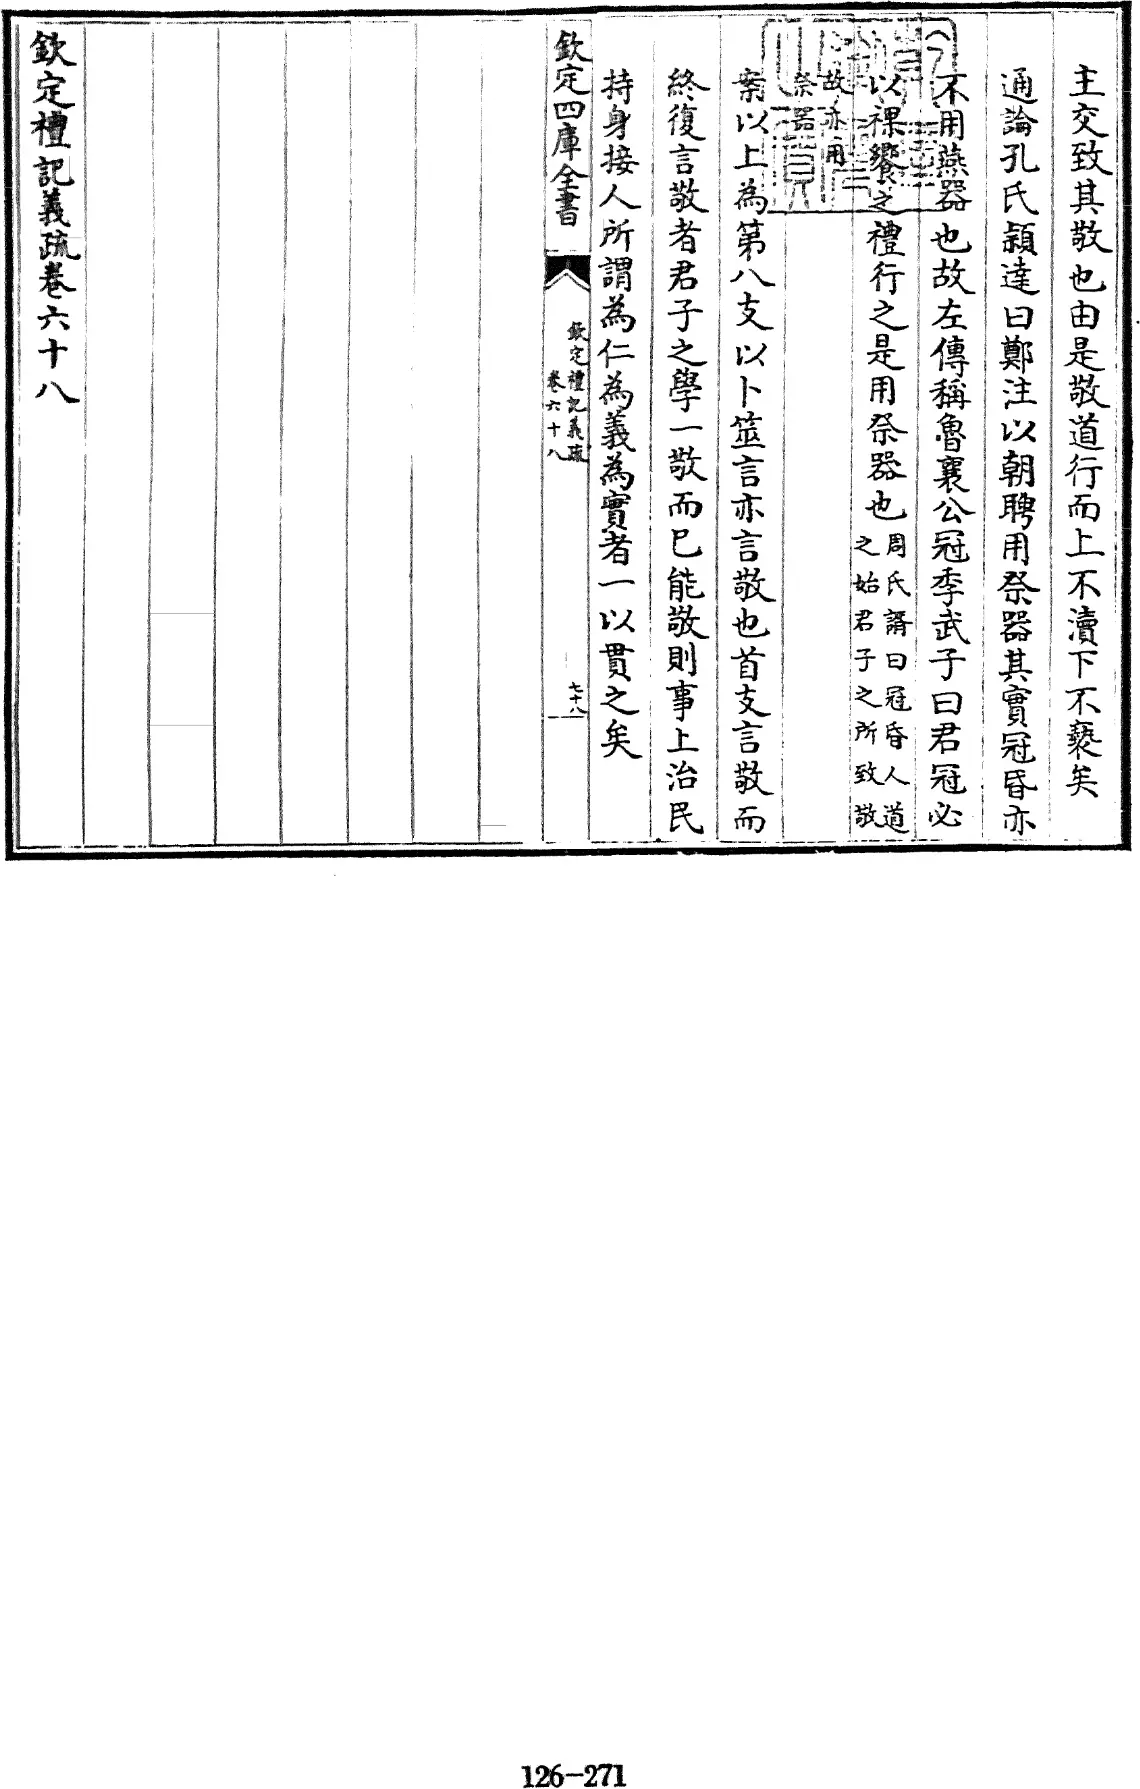 主交致其敬也由是敬道行而上不瀆下不褻矣
通論孔氏穎達曰鄭注以朝聘用祭器其實冠昏亦
不用燕器也故左傳稱魯襄公冠季武子曰君冠必
以祼饗之禮行之是用祭器也周氏諝曰冠昏人道
之始君子之所致敬
故亦用
祭器
案以上為第八支以卜筮言亦言敬也首支言敬而
終復言敬者君子之學一敬而已能敬則事上治民
持身接人所謂為仁為義為實者一以貫之矣
欽定四庫全書
欽定禮記義疏
卷六十八
七十八
欽定禮記義疏卷六十八
126-271